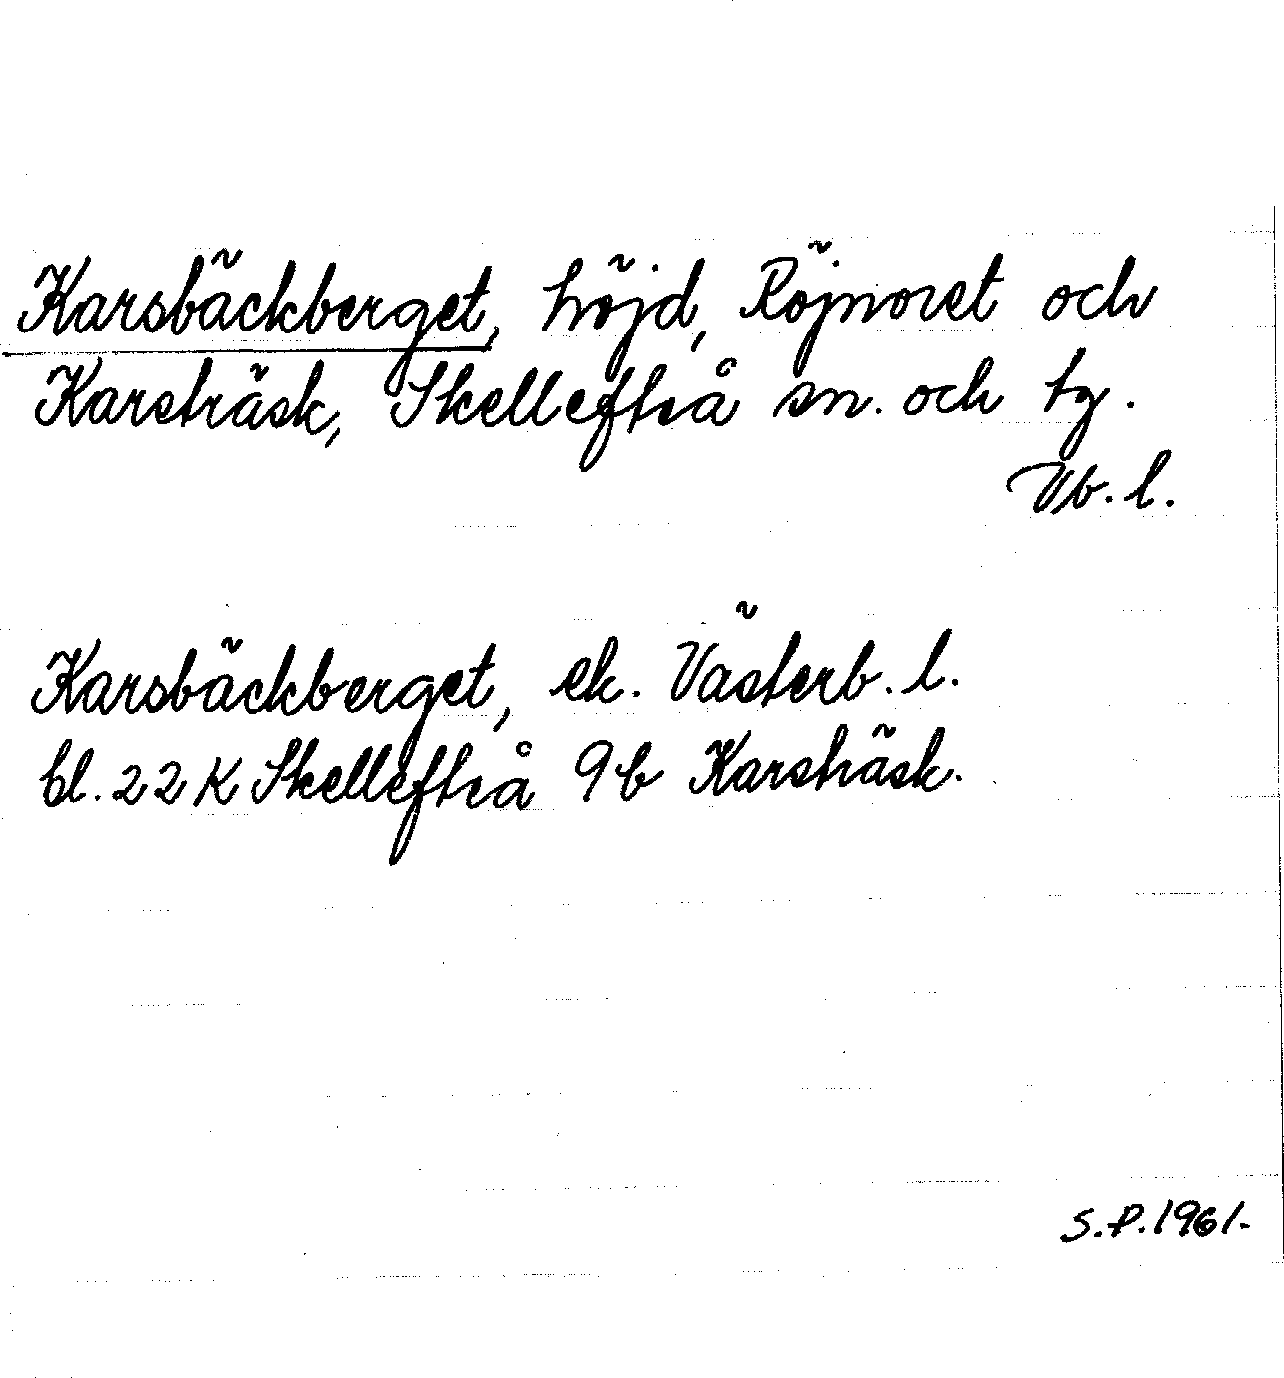 Karsbäckberget, höjd, Röjnoret och
Karsträsk, Skellefteå sn. och tg.
Vb. l.
Karsbäckberget, ek. Västerb. l.
bl. 22 K Skellefteå 9b Karsträsk.
S.P. 1961.